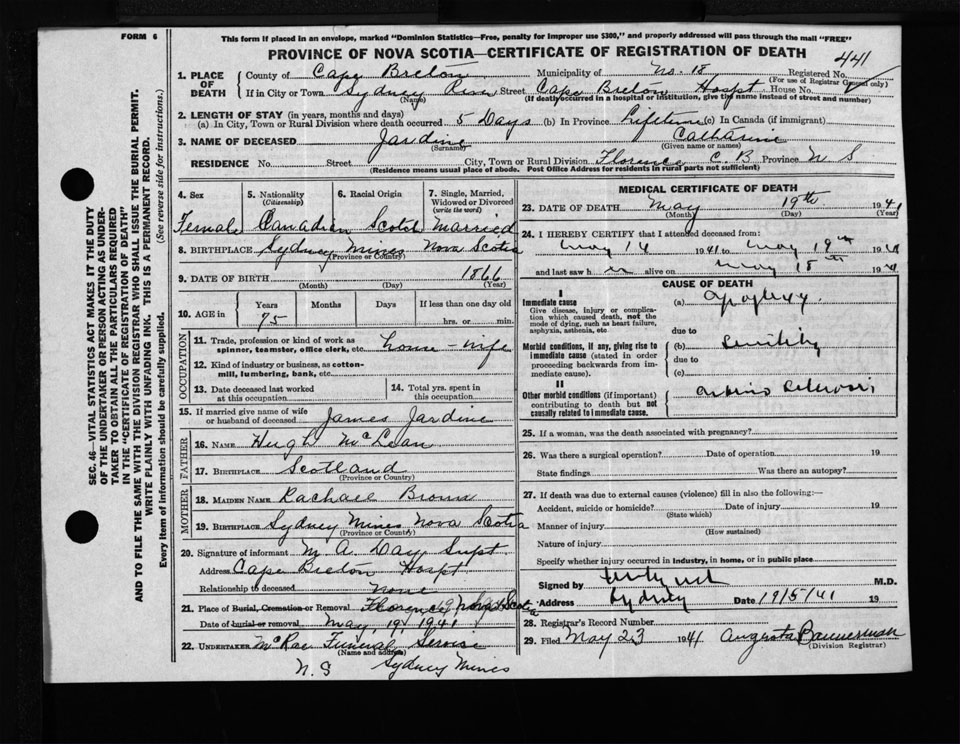 FORM 6
This form if placed in an envelope, marked "Dominion Statistics—Free, penalty for improper use $300," and properly addressed will pass through the mail "FREE"
PROVINCE OF NOVA SCOTIA—CERTIFICATE OF REGISTRATION OF DEATH
441
1. PLACE OF DEATH County of Cape Breton Municipality of No. 18 Registered No.
(For use of Registrar General only)
If in City or Town Sydney River Street Cape Breton Hospt House No.
(Name) (If death occurred in a hospital or institution, give the name instead of street and number)
2. LENGTH OF STAY (in years, months and days)
(a) In City, Town or Rural Division where death occurred 5 Days (b) In Province Lifetime (c) In Canada (if immigrant)
3. NAME OF DECEASED Jardine Catharine
(Surname) (Given name or names)
RESIDENCE No. Street City, Town or Rural Division Florence C. B Province N S
(Residence means usual place of abode. Post Office Address for residents in rural parts not sufficient)
4. Sex 5. Nationality (Citizenship) 6. Racial Origin 7. Single, Married, Widowed or Divorced (write the word)
Female Canadian Scotch Married
8. BIRTHPLACE Sydney Mines Nova Scotia
(Province or Country)
9. DATE OF BIRTH 1866
(Month) (Day) (Year)
10. AGE in Years Months Days If less than one day old
75 hrs. or min.
OCCUPATION
11. Trade, profession or kind of work as spinner, teamster, office clerk, etc. House-wife
12. Kind of industry or business, as cotton-mill, lumbering, bank, etc.
13. Date deceased last worked at this occupation 14. Total yrs. spent in this occupation
15. If married give name of wife or husband of deceased James Jardine
FATHER
16. NAME Hugh McLean
17. BIRTHPLACE Scotland
(Province or Country)
MOTHER
18. MAIDEN NAME Rachael Brown
19. BIRTHPLACE Sydney Mines Nova Scotia
(Province or Country)
20. Signature of informant M. A. Day Supt.
Address Cape Breton Hospt
Relationship to deceased none
21. Place of Burial, Cremation or Removal Florence, Nova Scotia
Date of burial or removal May, 19, 1941
22. UNDERTAKER McRae Funeral Service
(Name and address)
N. S Sydney Mines
MEDICAL CERTIFICATE OF DEATH
23. DATE OF DEATH May 19th 1941
(Month) (Day) (Year)
24. I HEREBY CERTIFY that I attended deceased from:
May 14 1941 to May 19th 1941
and last saw her alive on May 18th 1941
CAUSE OF DEATH
I
Immediate cause
Give disease, injury or complication which caused death, not the mode of dying, such as heart failure, asphyxia, asthenia, etc
(a) Apoplexy
due to
Morbid conditions, if any, giving rise to immediate cause (stated in order proceeding backwards from immediate cause).
(b) Senility
due to
(c)
II
Other morbid conditions (if important) contributing to death but not causally related to immediate cause.
Arterio Sclerosis
25. If a woman, was the death associated with pregnancy?
26. Was there a surgical operation? Date of operation 19
State findings Was there an autopsy?
27. If death was due to external causes (violence) fill in also the following:—
Accident, suicide or homicide? Date of injury 19
(State which)
Manner of injury
(How sustained)
Nature of injury
Specify whether injury occurred in industry, in home, or in public place
Signed by M.D.
Address Sydney Date 19/5/41 19
28. Registrar's Record Number
29. Filed May 23 1941 Augusta Bannerman
(Division Registrar)
SEC. 46—VITAL STATISTICS ACT MAKES IT THE DUTY
OF THE UNDERTAKER OR PERSON ACTING AS UNDER-
TAKER TO OBTAIN ALL THE PARTICULARS REQUIRED
IN THE "CERTIFICATE OF REGISTRATION OF DEATH"
AND TO FILE THE SAME WITH THE DIVISION REGISTRAR WHO SHALL ISSUE THE BURIAL PERMIT.
WRITE PLAINLY WITH UNFADING INK. THIS IS A PERMANENT RECORD.
Every item of information should be carefully supplied. (See reverse side for instructions.)